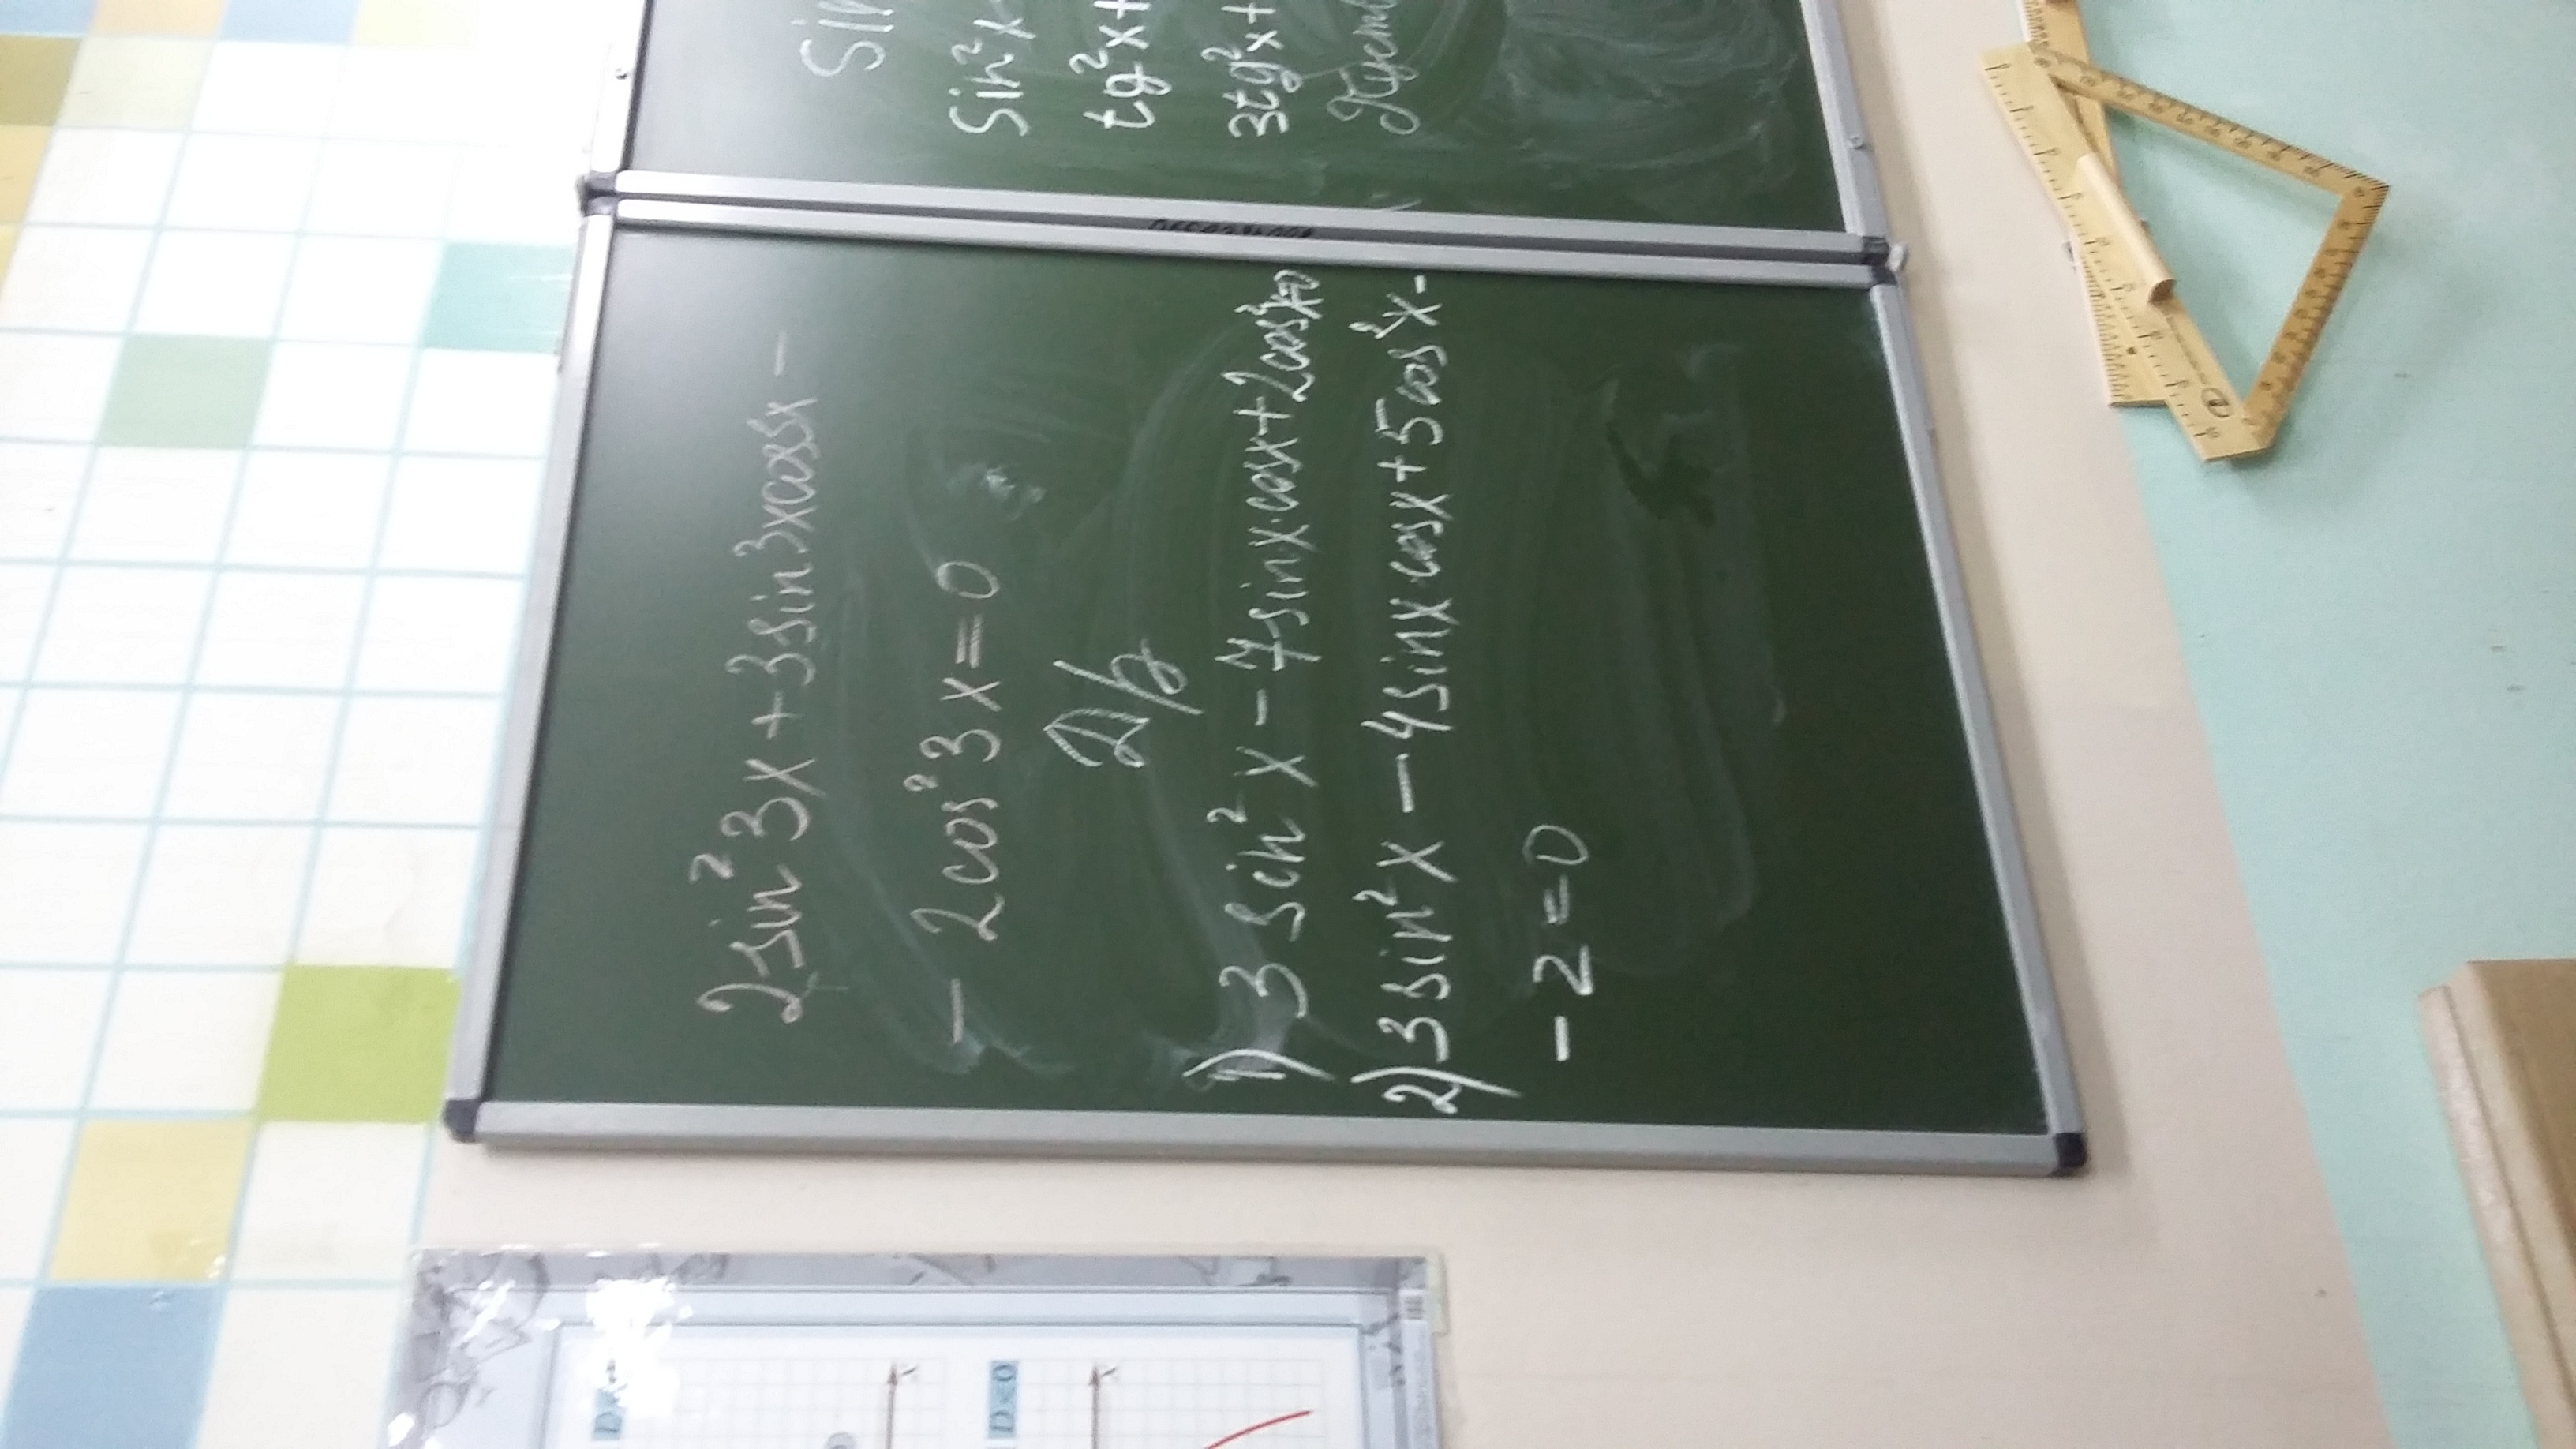 2sin²3x + 3sin3xcosx -
- 2cos²3x = 0
Д/з
1) 3 sin²x - 7sinx·cosx + 2cos²x=0
2) 3sin²x - 4sinx·cosx + 5cos²x -
- 2 = 0
sin²x
tg²x +
3tg²x +
Пуст
D<0